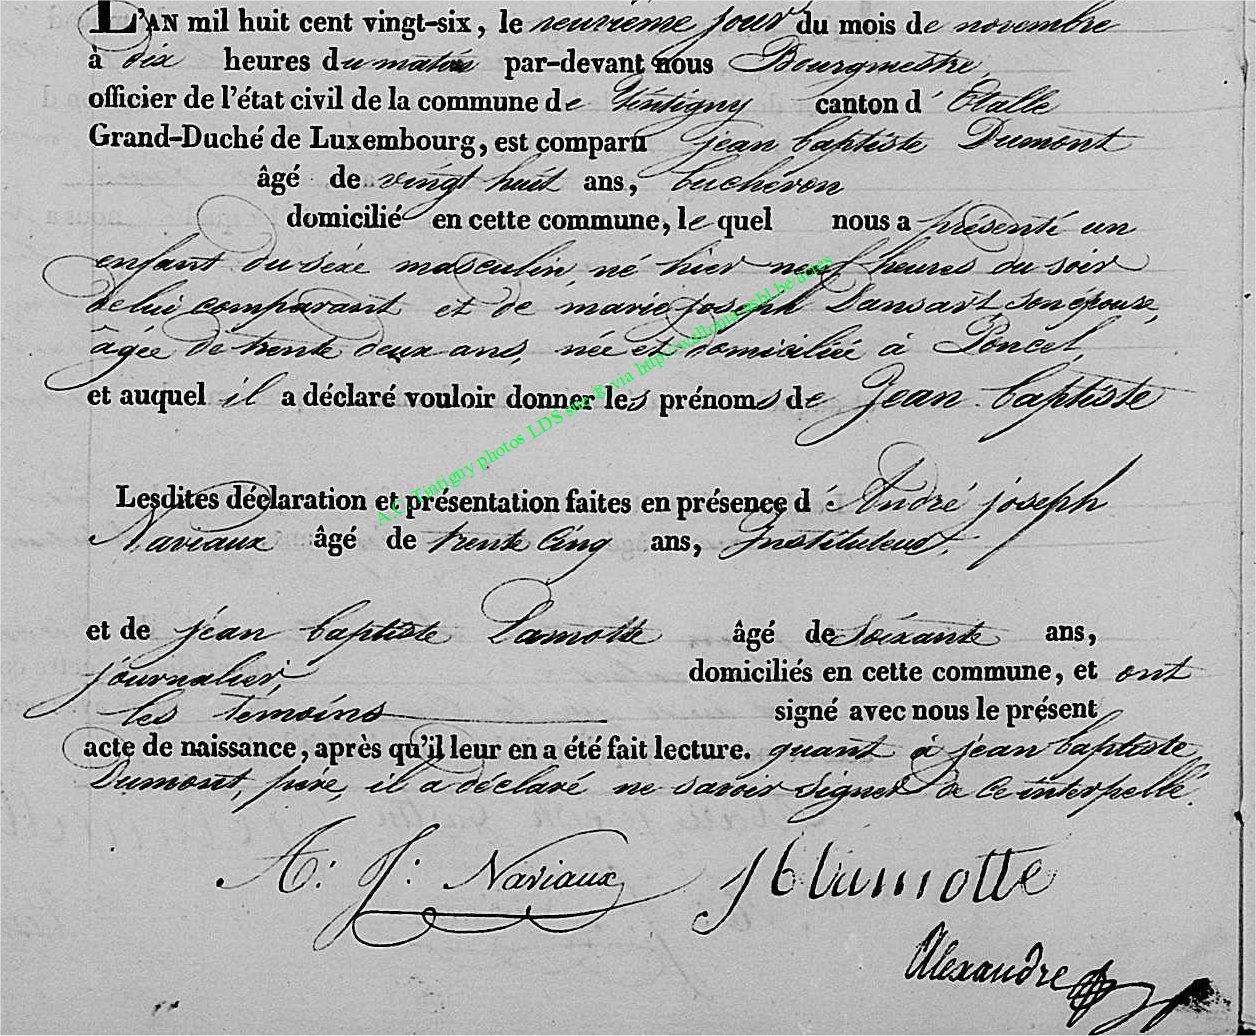 L'AN mil huit cent vingt-six, le neuvième jour du mois de novembre
à dix heures du matin par-devant nous Bourgmestre,
officier de l'état civil de la commune de Tintigny canton d' Etalle
Grand-Duché de Luxembourg, est comparu jean baptiste Dumont
âgé de vingt huit ans, bucheron
domicilié en cette commune, le quel nous a présenté un
enfant du sexe masculin né hier neuf heures du soir
de lui comparant et de marie joseph Dansart, son épouse,
âgée de trente deux ans, née et domiciliée à Poncel,
et auquel il a déclaré vouloir donner les prénoms de Jean baptiste
Lesdites déclaration et présentation faites en présence d' André joseph
Naviaux âgé de trente cinq ans, Instituteur,
et de jean baptiste Lamotte âgé de soixante ans,
journalier, domiciliés en cette commune, et ont
les temoins signé avec nous le présent
acte de naissance, après qu'il leur en a été fait lecture. quant à jean baptiste
Dumont, père, il a déclaré ne savoir signer de ce interpellé.
A: J: Naviaux J b lamotte
Alexandre
A.C. Tintigny photos LDS site & via http://wallonia-asbl.be/actes